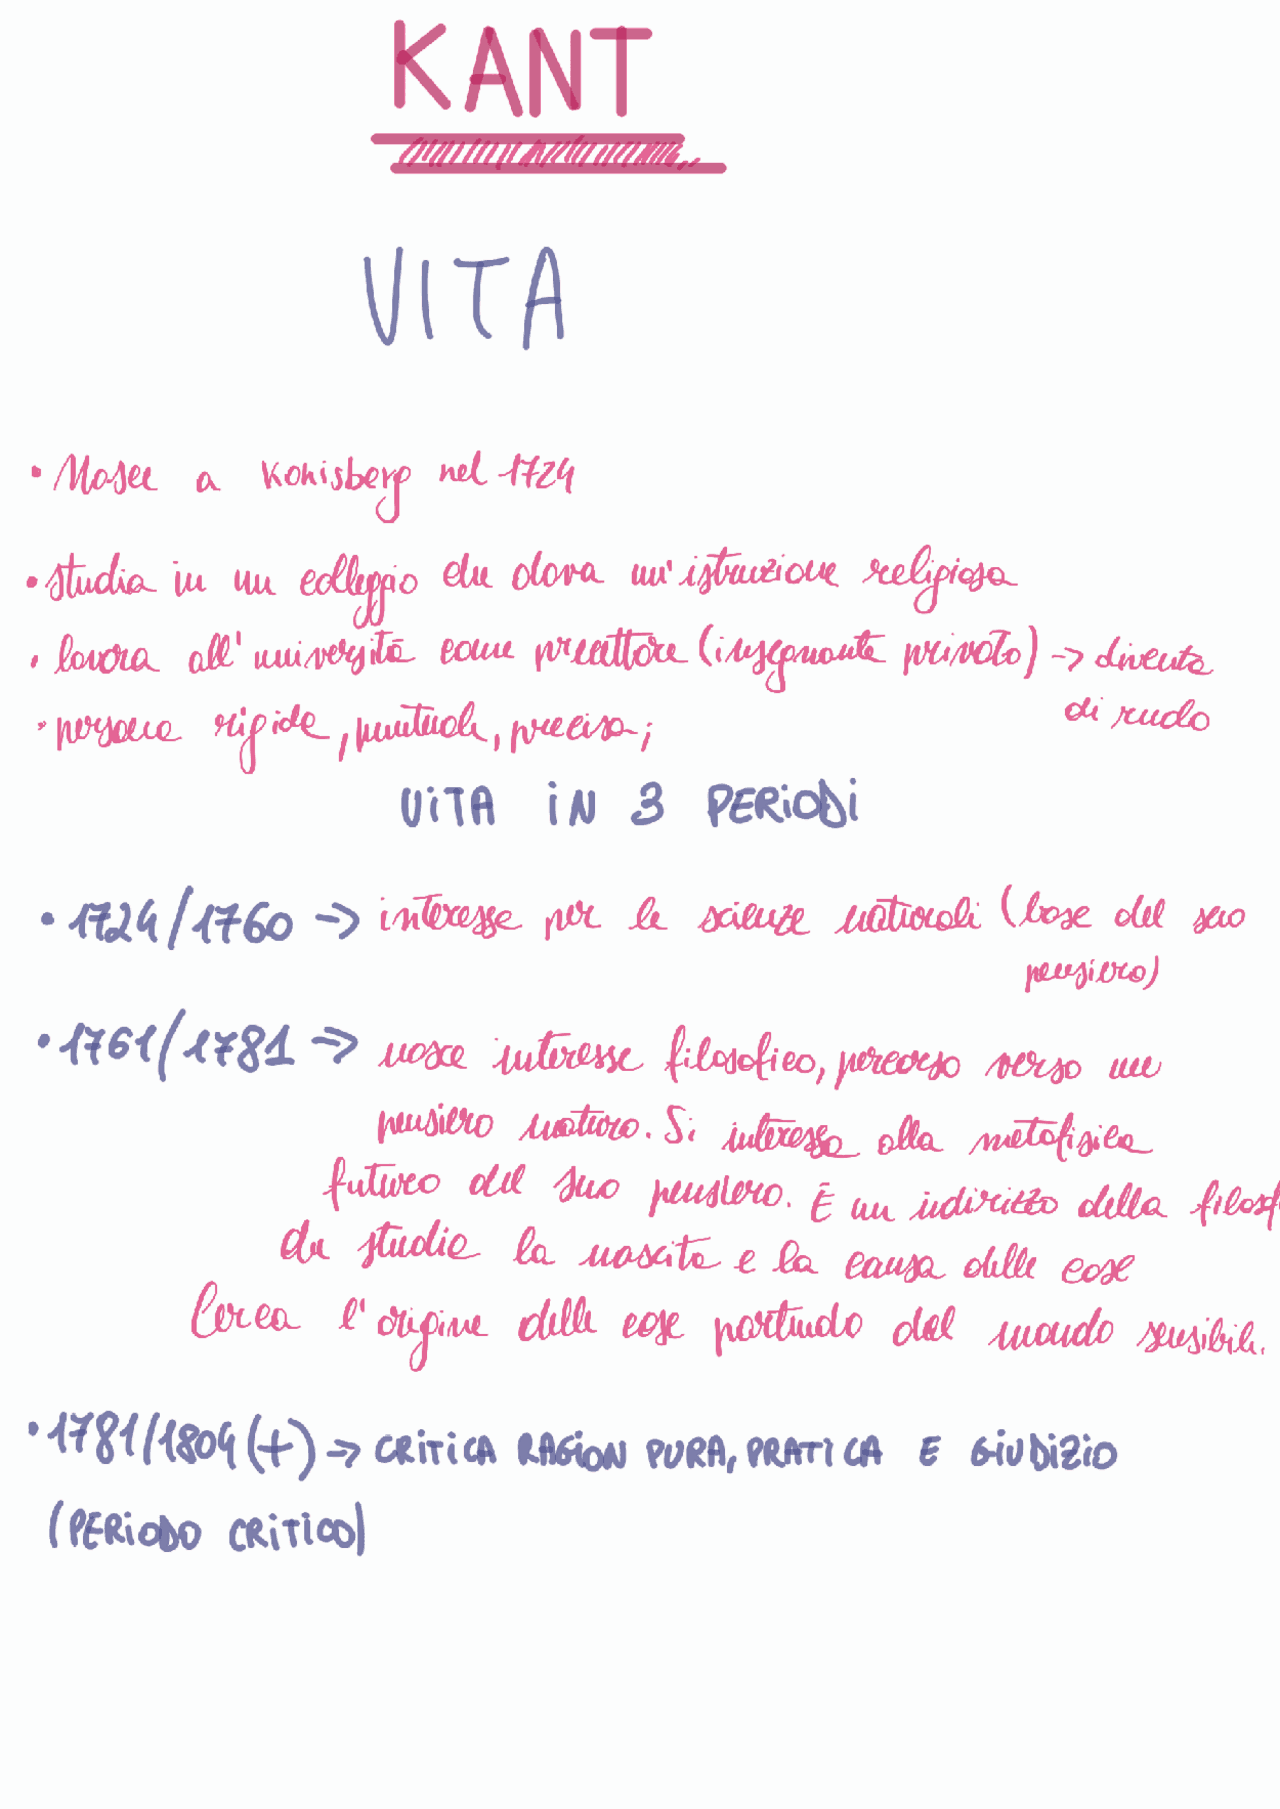 KANT
VITA
• Nasce a Konisberg nel 1724
• studia in un colleggio che dava un'istruzione religiosa
• lavora all'università come precettore (insegnante privato) -> diventa
di ruolo
• persona rigida, puntuale, precisa;
ViTA iN 3 PERiODi
• 1724/1760 -> interesse per le scienze naturali (base del suo
pensiero)
• 1761/1781 => nasce interesse filosofico, percorso verso un
pensiero maturo. Si interessa alla metafisica
futuro del suo pensiero. È un indirizzo della filosof
che studia la nascita e la causa delle cose
Cerca l'origine delle cose partendo dal mondo sensibile.
• 1781/1804 (+) => CRiTiCA RAGiON PURA, PRATiCA E GiUDiZiO
(PERiODO CRiTiCO)